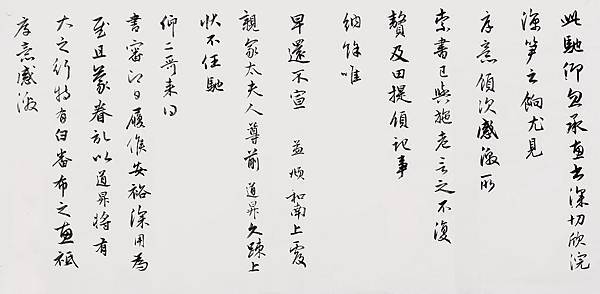 此馳仰忽承惠書深切欣浣
海笋之餉尤見
厚意傾次感激所
索書已與施老言之不復
贅及田提傾記事
納餘唯
早還不宣 益順和南上覆
親家太夫人尊前 道昇久疎上
狀不任馳
仰二哥來得
書審即日履候安裕深用為
且蒙眷以道昇將有
大之行特有白番布之惠祗
厚意感激